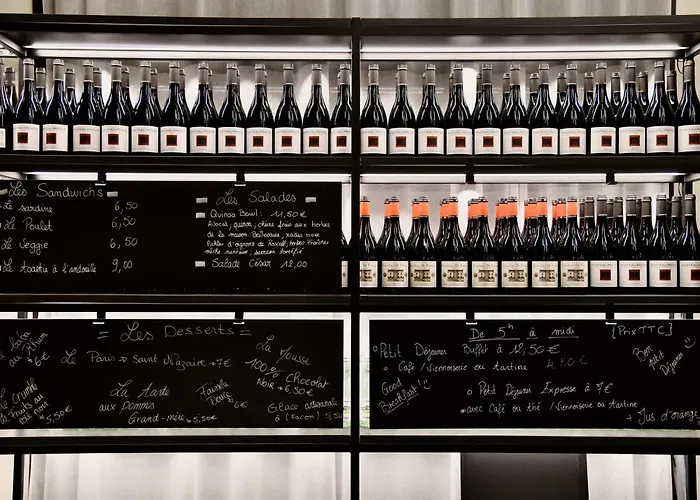 Les Sandwichs
Le sardine 6,50
Le Poulet 6,50
Le Veggie 6,50
Le toastie à l'andouille 9,00
Les Salades
Quinoa Bowl : 11,50€
Avocat, quinoa, chèvre frais aux herbes
de la maison Bellevaire, radis rose
Pickles d'oignons de Roscoff, tomates fraîches
mâche nantaise, sarrasin torréfié
Salade César 12,00
= Les Desserts =
au Rhum
6€
Le Paris → Saint Nazaire → 7€
Le Crumble
aux Fruits du
ou non
→ 5,50€
La tarte
aux pommes
Grand-mère → 5,50€
6€
La Mousse
100% Chocolat
Noir → 6,50€
Glace artisanale
à (façon) 5,50€
De 5h à midi
{Prix TTC}
Petit Déjeuner Buffet à 12,50€
Café /Viennoiserie ou tartine 4,50€
Bon
petit
Déjeuner
Good
Breakfast
Petit Déjeuner Expresse à 7€
avec Café ou thé /Viennoiserie ou tartine
+ Jus d'orange